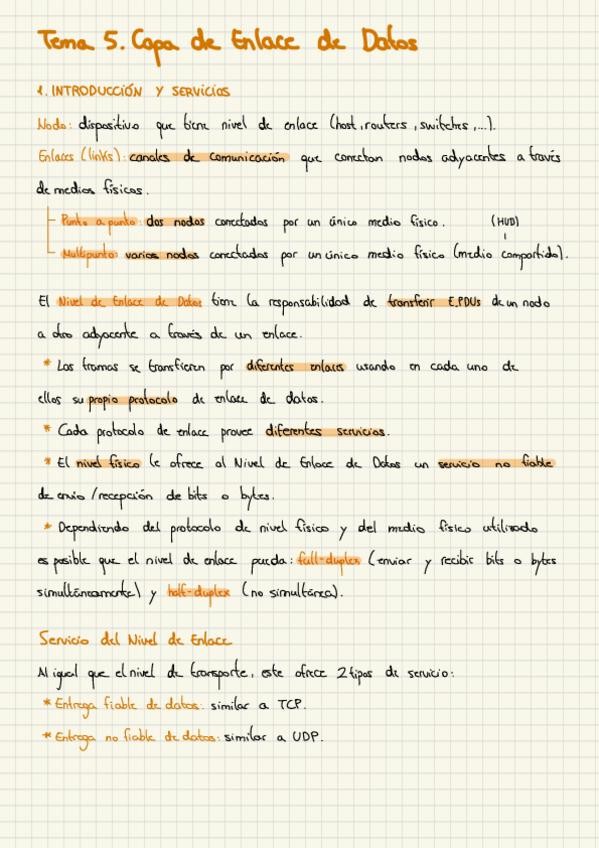 Tema 5. Capa de Enlace de Datos
1. INTRODUCCIÓN Y SERVICIOS
Nodo: dispositivo que tiene nivel de enlace (host, routers, switches, ...).
Enlaces (links): canales de comunicación que conectan nodos adyacentes a través
de medios físicos.
Punto a punto: dos nodos conectados por un único medio físico. (HUB)
Multipunto: varios nodos conectados por un único medio físico (medio compartido).
El Nivel de Enlace de Datos tiene la responsabilidad de transferir E.PDUs de un nodo
a otro adyacente a través de un enlace.
* Las tramas se transfieren por diferentes enlaces usando en cada uno de
ellos su propio protocolo de enlace de datos.
* Cada protocolo de enlace provee diferentes servicios.
* El nivel físico le ofrece al Nivel de Enlace de Datos un servicio no fiable
de envio / recepción de bits o bytes.
* Dependiendo del protocolo de nivel físico y del medio físico utilizado
es posible que el nivel de enlace pueda: full-duplex (enviar y recibir bits o bytes
simultáneamente) y half-duplex (no simultánea).
Servicio del Nivel de Enlace
Al igual que el nivel de transporte, este ofrece 2 tipos de servicio:
* Entrega fiable de datos: similar a TCP.
* Entrega no fiable de datos: similar a UDP.